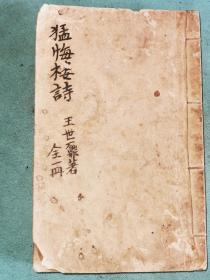 猛悔楼詩
王世鼐著
全一冊